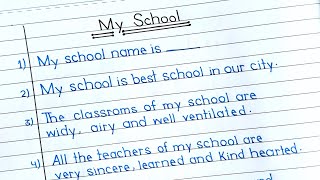 My School
1) My school name is ____
2) My school is best school in our city.
3) The classroms of my school are
widy, airy and well ventilated.
4) All the teachers of my school are
very sincere, learned and kind hearted.